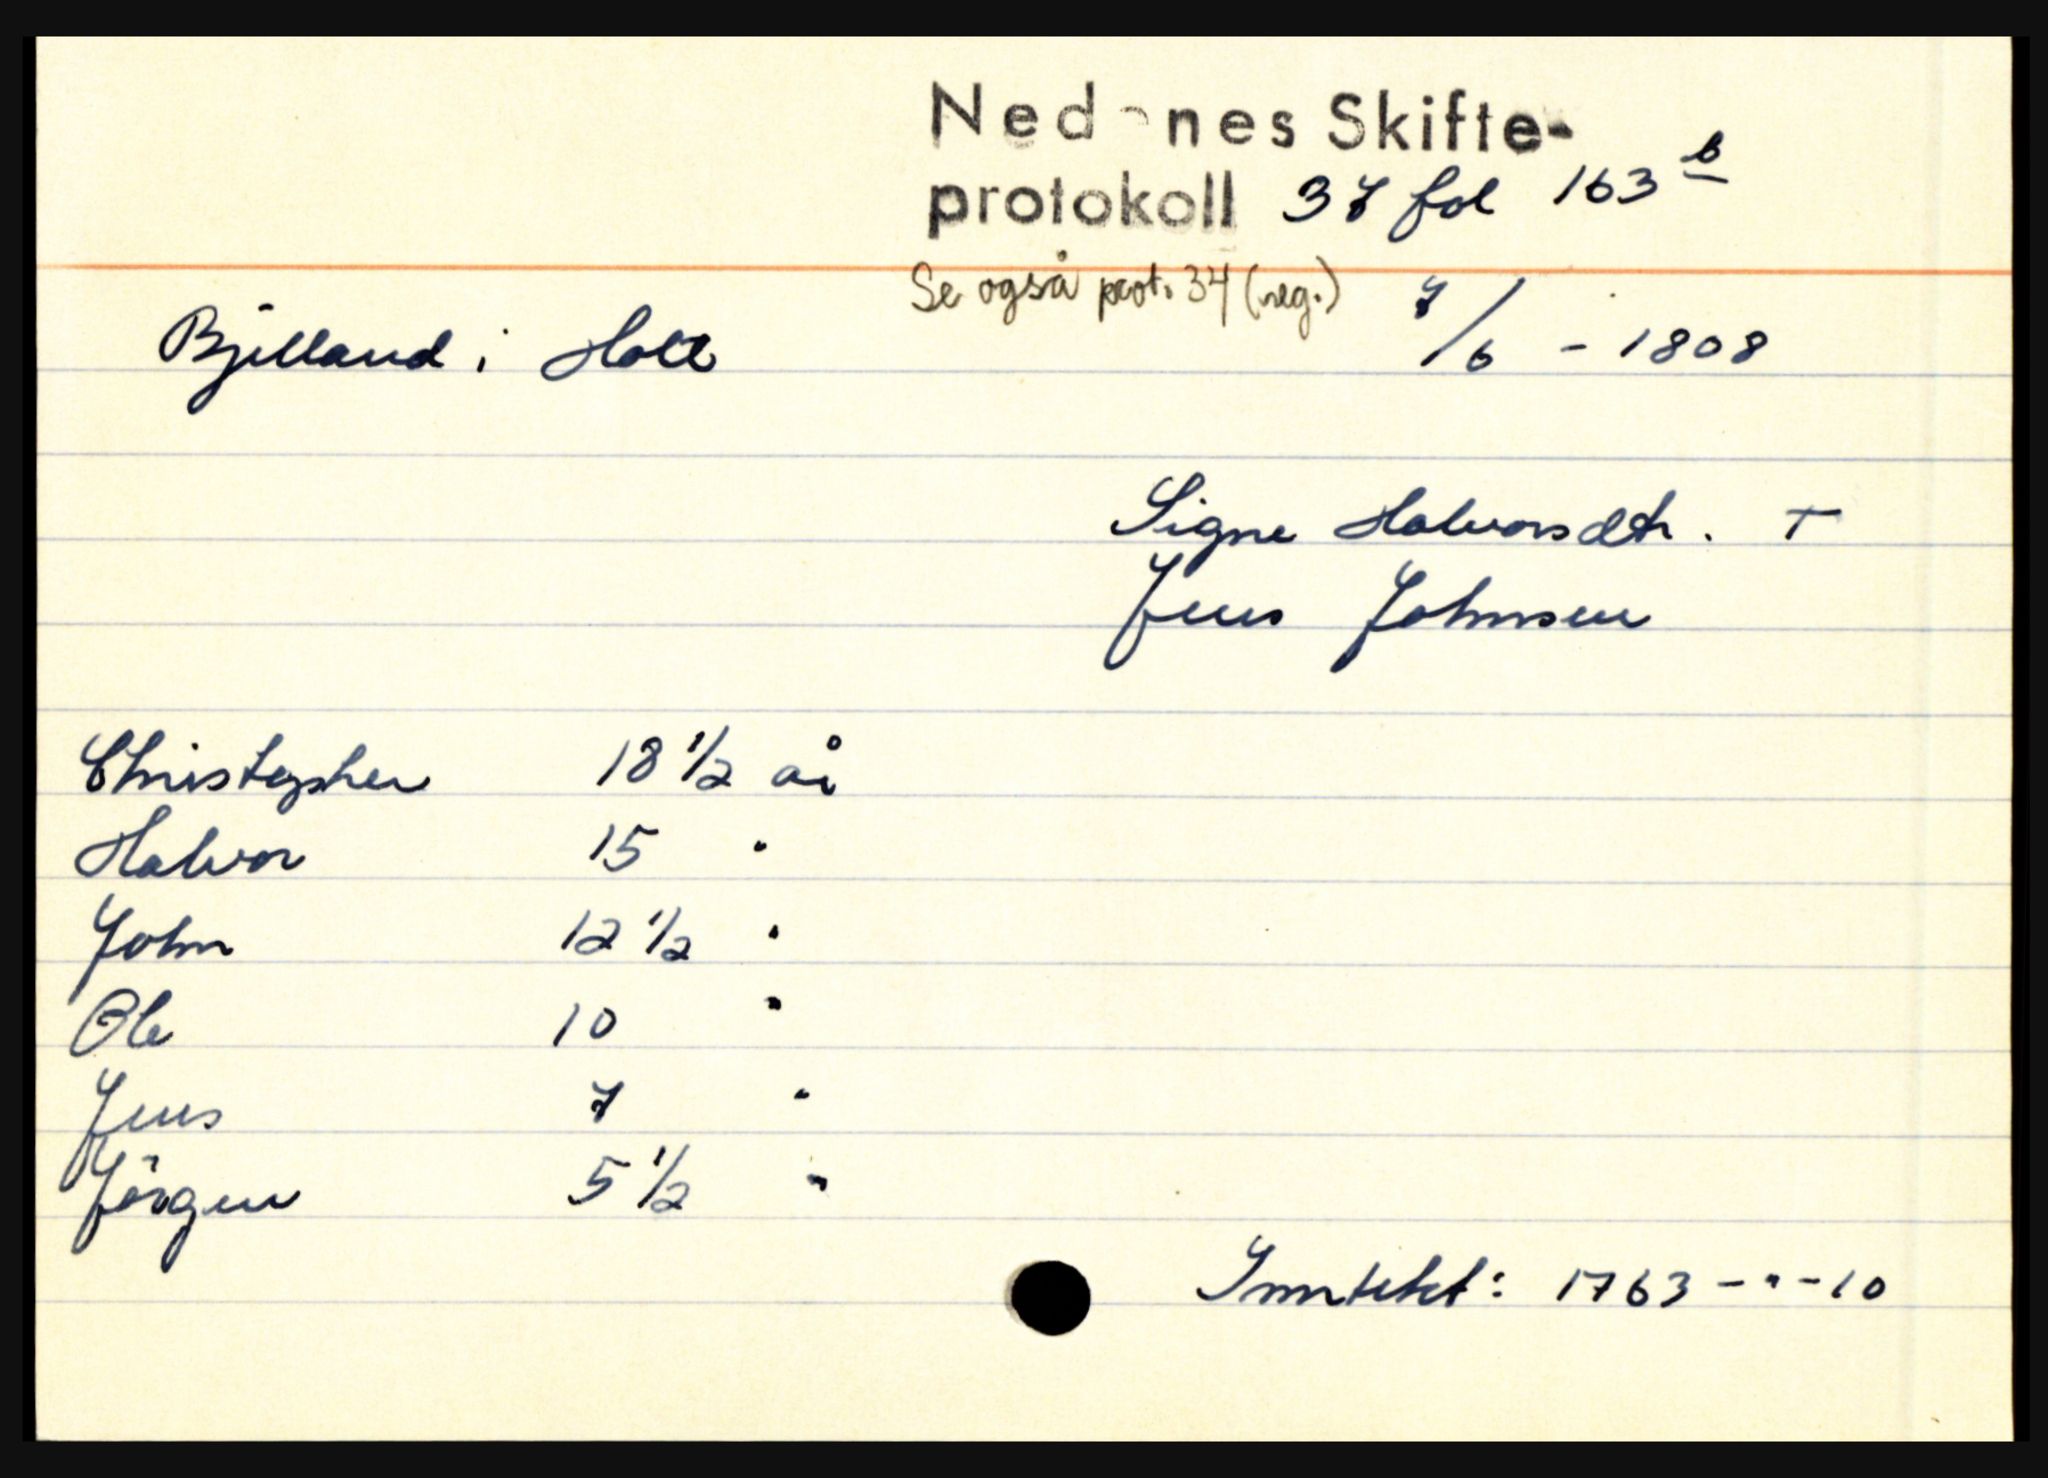 Nedenes Skifte-
protokoll 37 fol 163 b
Se også prot. 34 (reg.)
7/6 - 1808
Bjelland i Holt
Signe Halvorsdtr. †
Jens Johnsen
Christopher 18 1/2 år
Halvor 15 "
John 12 1/2 "
Ole 10 "
Jens 7 "
Jörgen 5 1/2 "
Inntekt: 1763 - " - 10